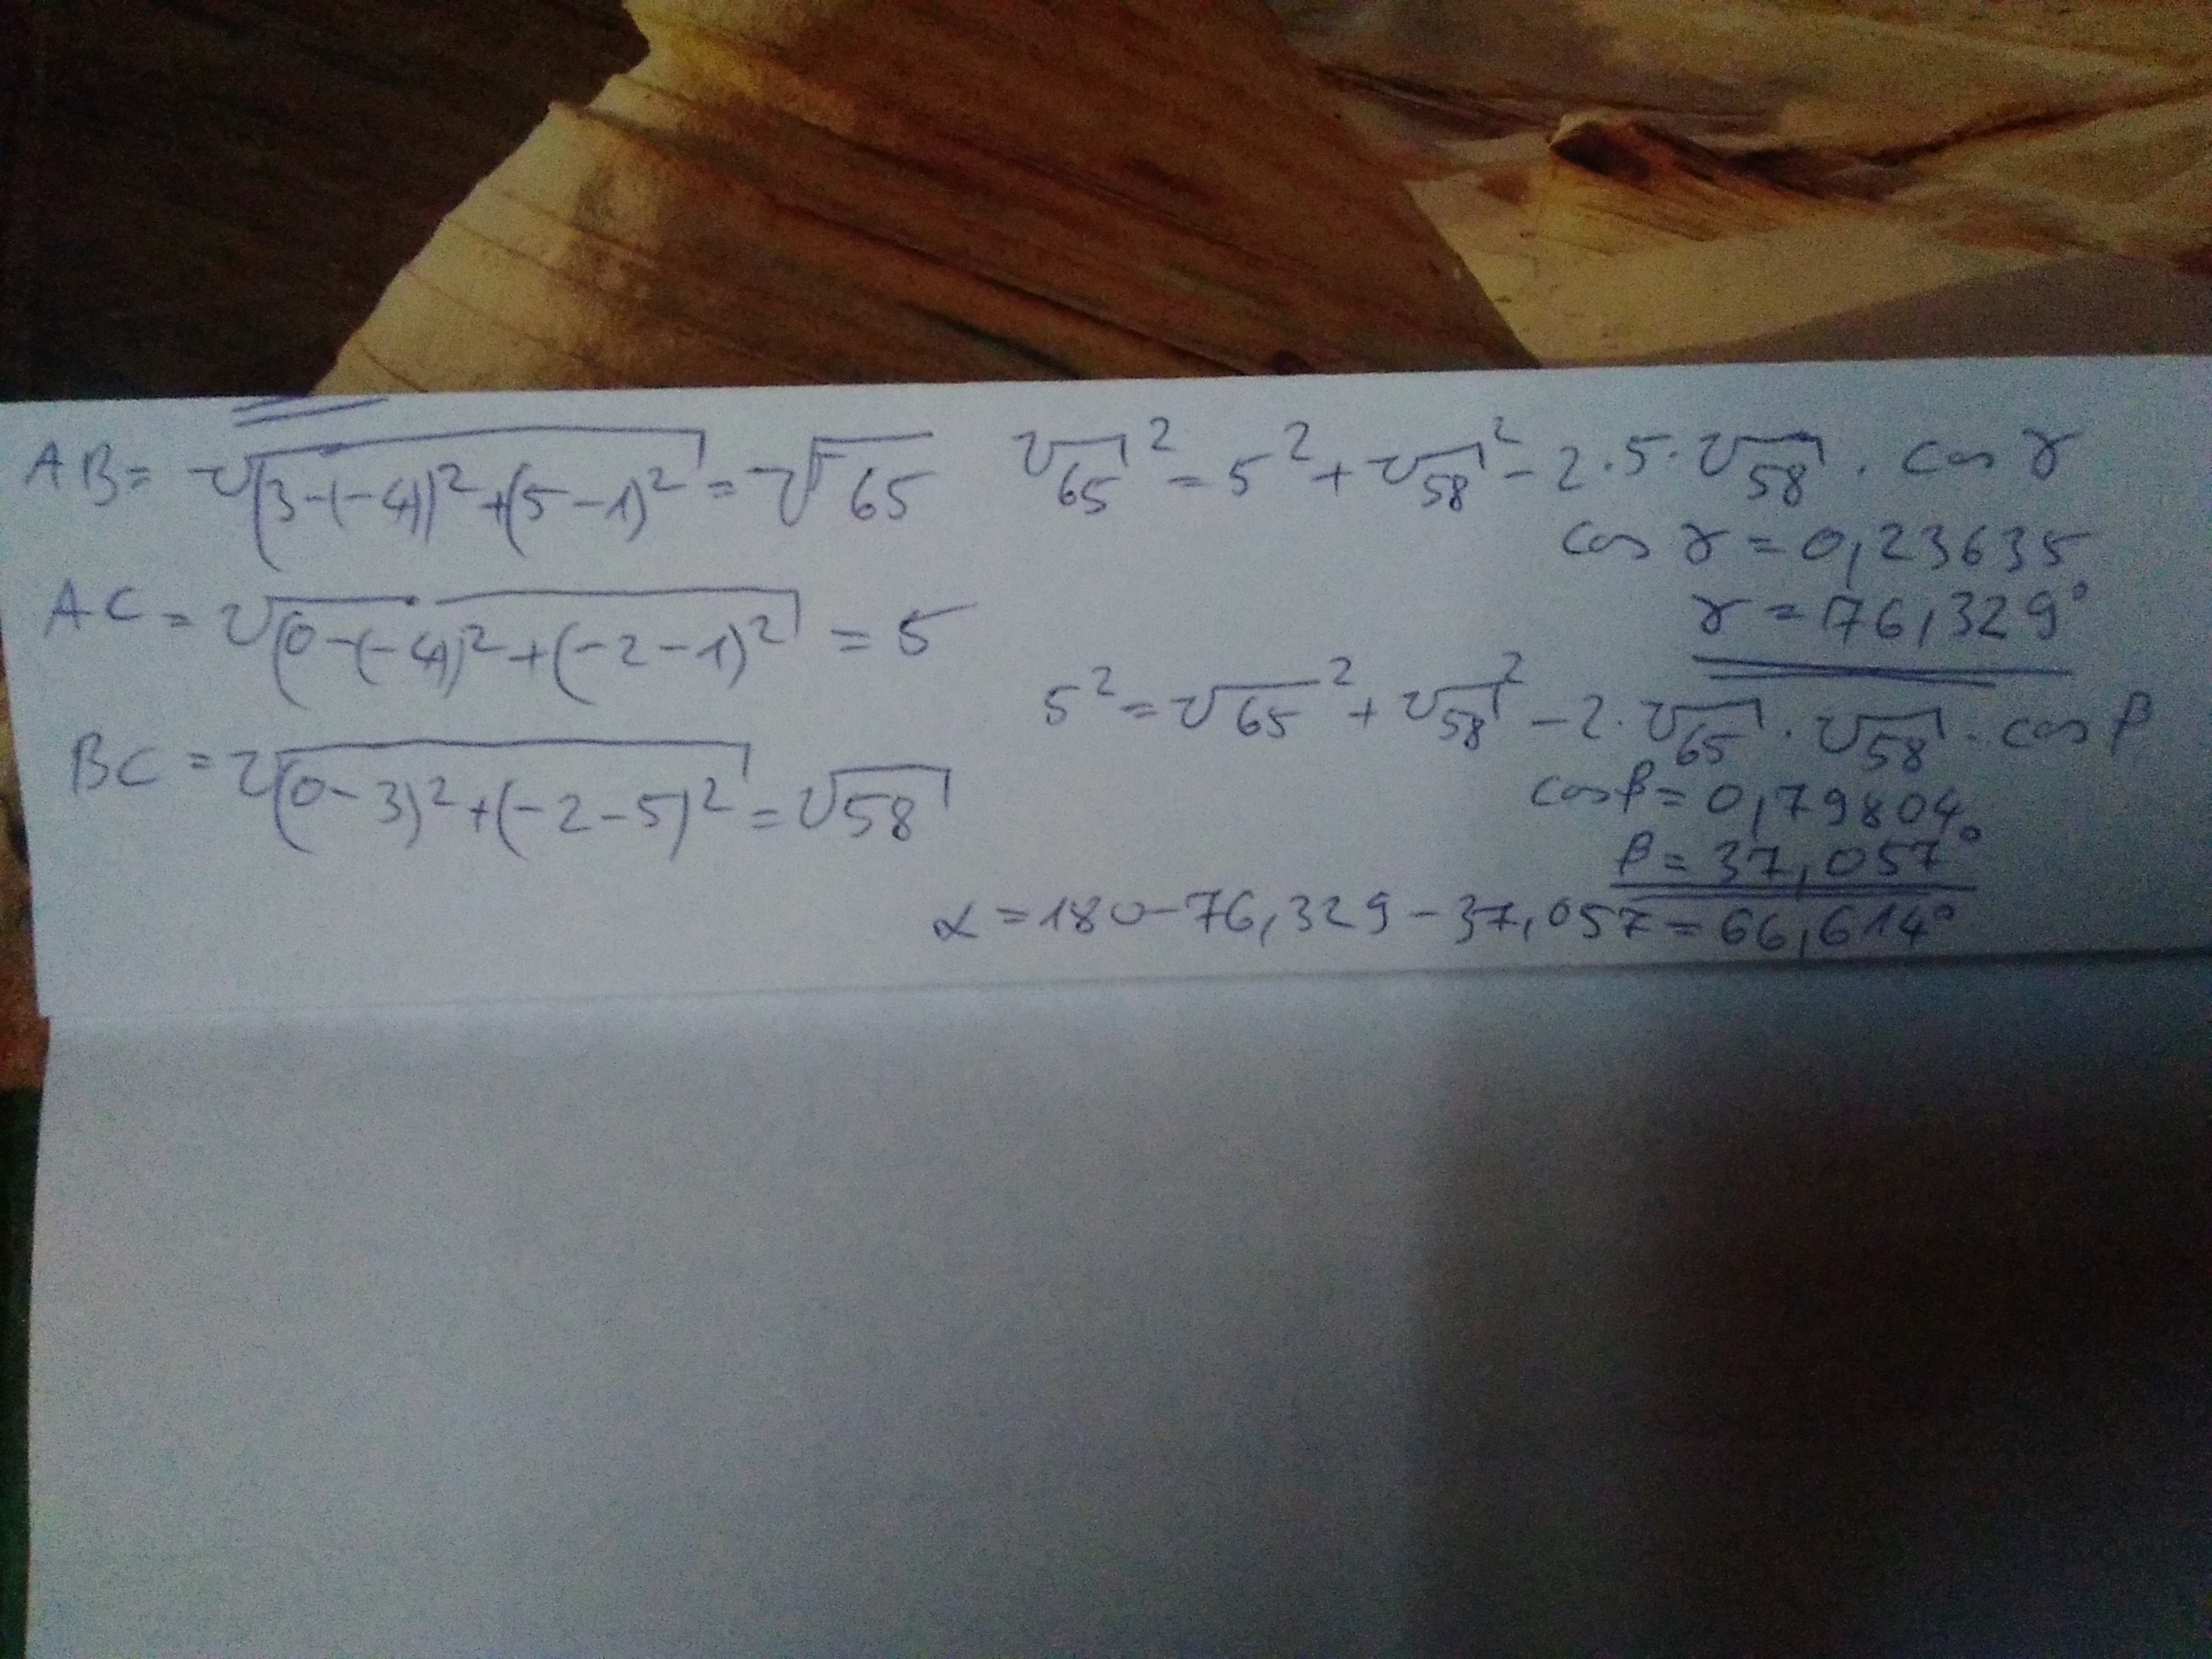 AB = √(3-(-4))²+(5-1)² = √65
AC = √(0-(-4))²+(-2-1)² = 5
BC = √(0-3)²+(-2-5)² = √58
√65² = 5² + √58² - 2·5·√58 · cos γ
cos γ = 0,23635
γ = 76,329°
5² = √65² + √58² - 2·√65·√58·cos β
cos β = 0,79804
β = 37,057°
α = 180-76,329-37,057 = 66,614°